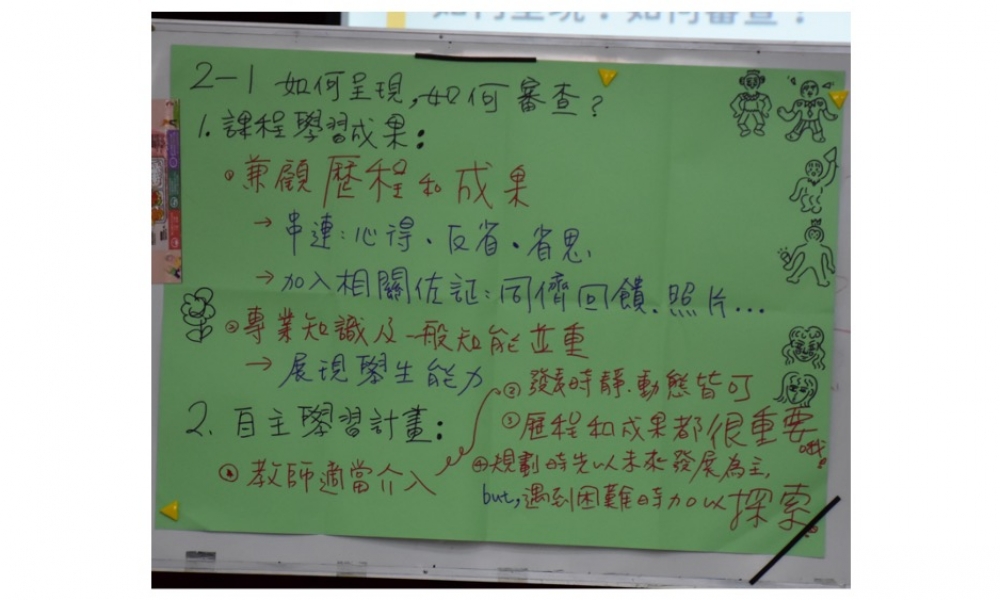 如何呈現？如何審查？
2-1 如何呈現,如何審查？
1. 課程學習成果：
① 兼顧歷程和成果
→ 串連：心得、反省、省思
→ 加入相關佐証：同儕回饋、照片...
② 專業知識及一般知能並重
→ 展現學生能力
2. 自主學習計畫：
① 教師適當介入
② 發表時靜.動態皆可
③ 歷程和成果都很重要哦!
④ 規劃時先以未來發展為主,
but, 遇到困難時加以探索